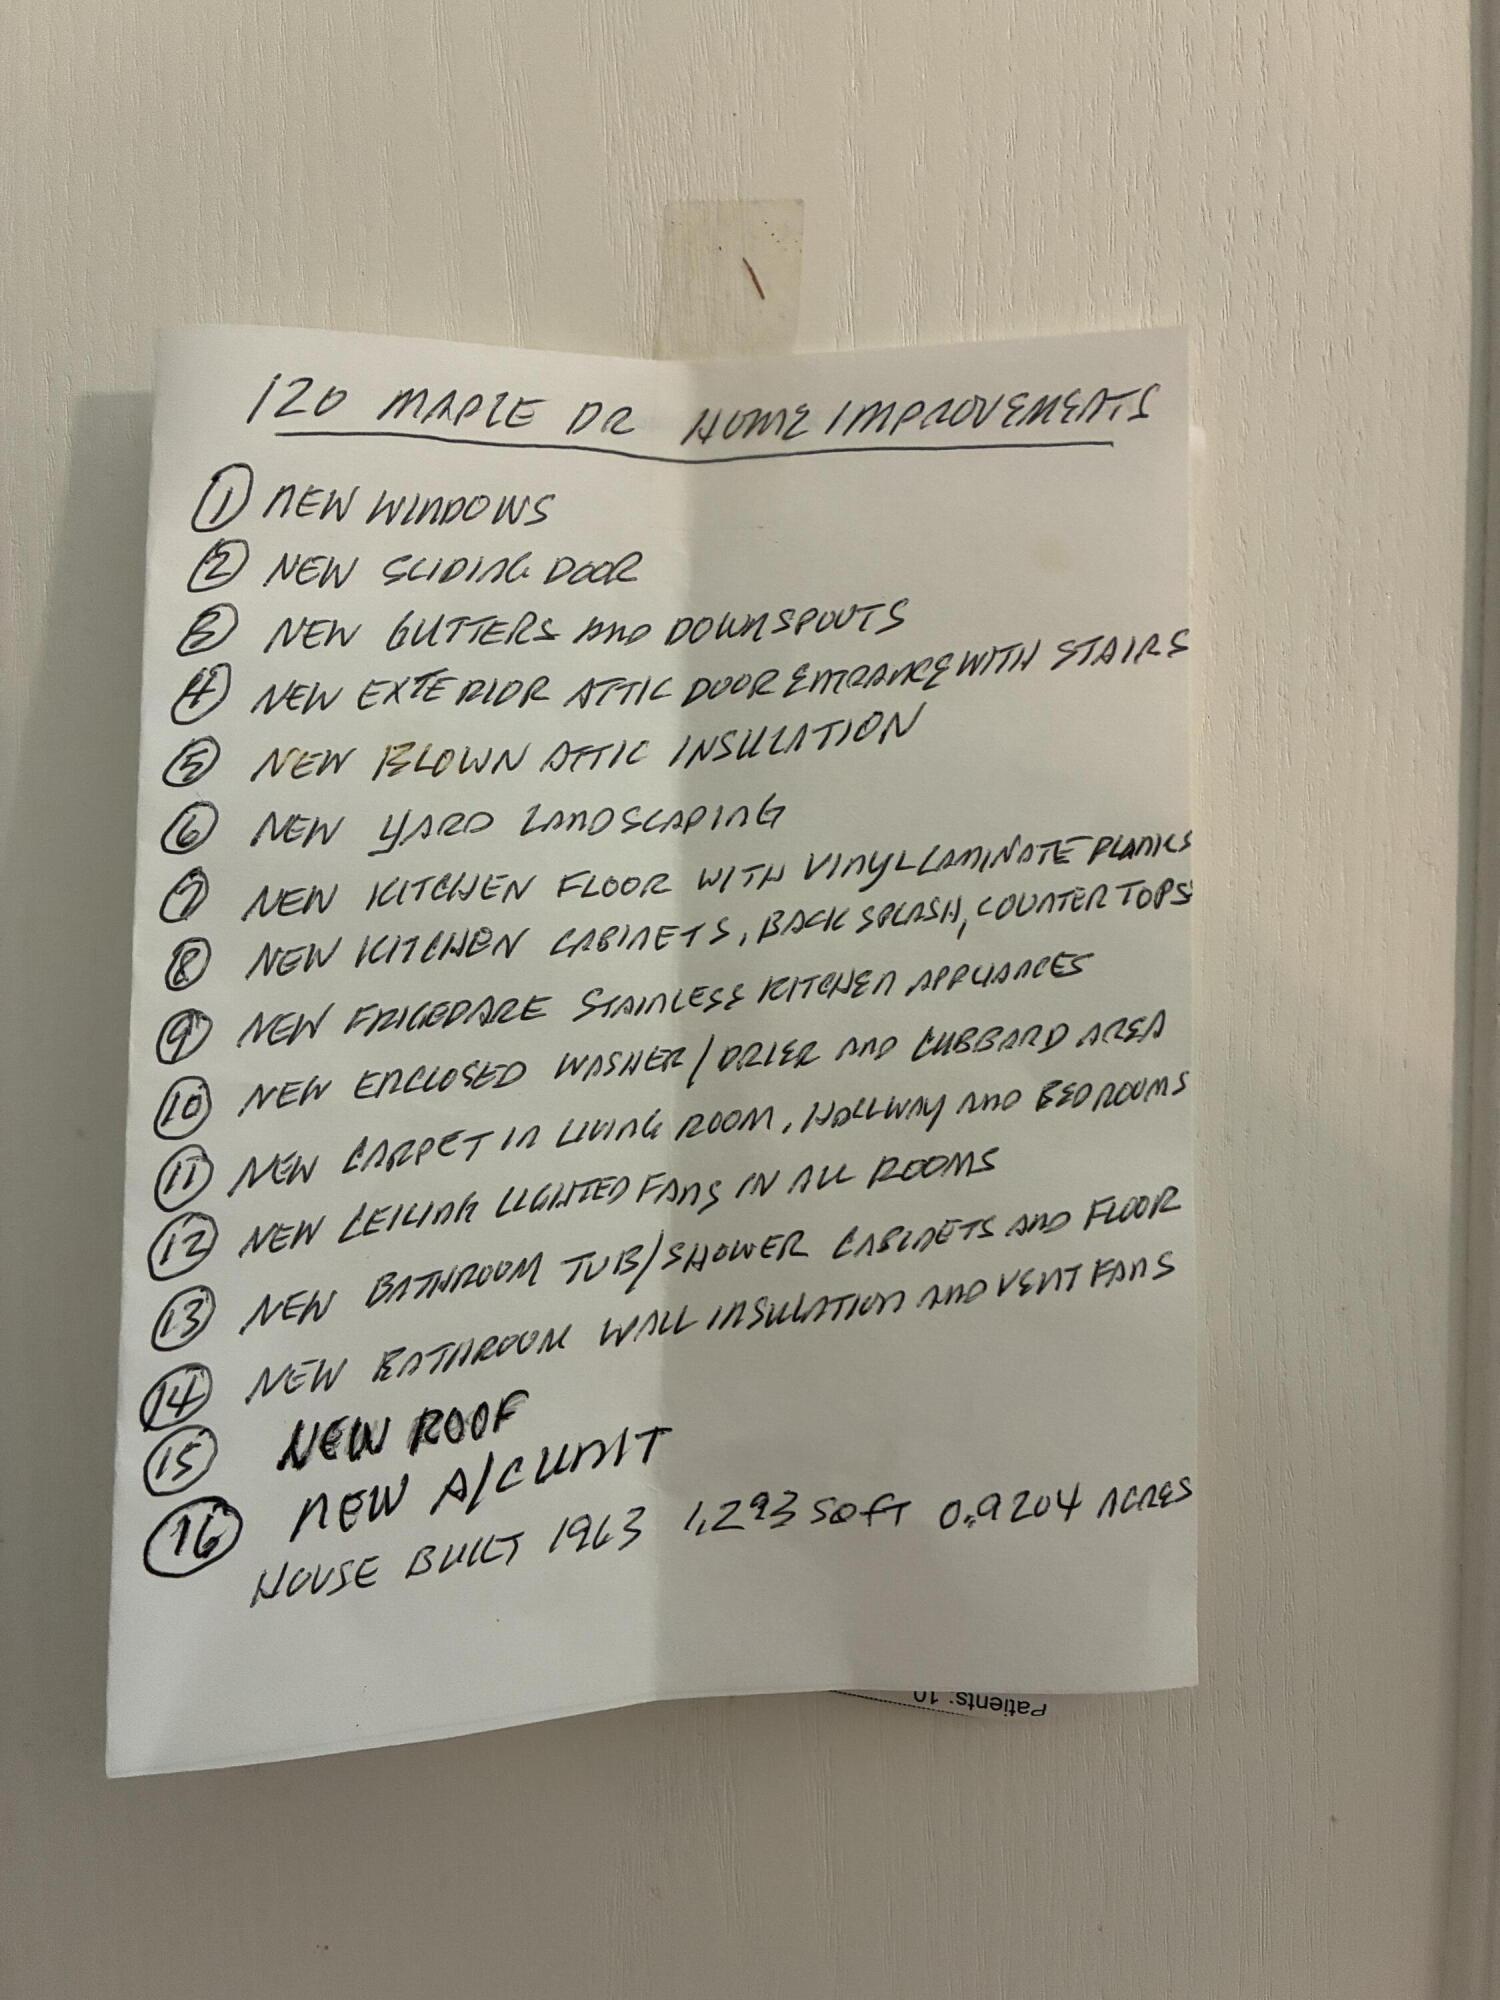 120 MAPLE DR HOME IMPROVEMENTS
① NEW WINDOWS
② NEW SLIDING DOOR
③ NEW GUTTERS AND DOWNSPOUTS
④ NEW EXTERIOR ATTIC DOOR ENTRANCE WITH STAIRS
⑤ NEW BLOWN ATTIC INSULATION
⑥ NEW YARD LANDSCAPING
⑦ NEW KITCHEN FLOOR WITH VINYL LAMINATE PLANKS
⑧ NEW KITCHEN CABINETS, BACK SPLASH, COUNTER TOPS
⑨ NEW FRIGEDARE STAINLESS KITCHEN APPLIANCES
⑩ NEW ENCLOSED WASHER/DRIER AND CUBBARD AREA
⑪ NEW CARPET IN LIVING ROOM, HALLWAY AND BEDROOMS
⑫ NEW CEILING LIGHTED FANS IN ALL ROOMS
⑬ NEW BATHROOM TUB/SHOWER CABINETS AND FLOOR
⑭ NEW BATHROOM WALL INSULATION AND VENT FANS
⑮ NEW ROOF
⑯ NEW A/C UNIT
HOUSE BUILT 1963 1,293 SQFT 0.9204 ACRES
Patients: 10